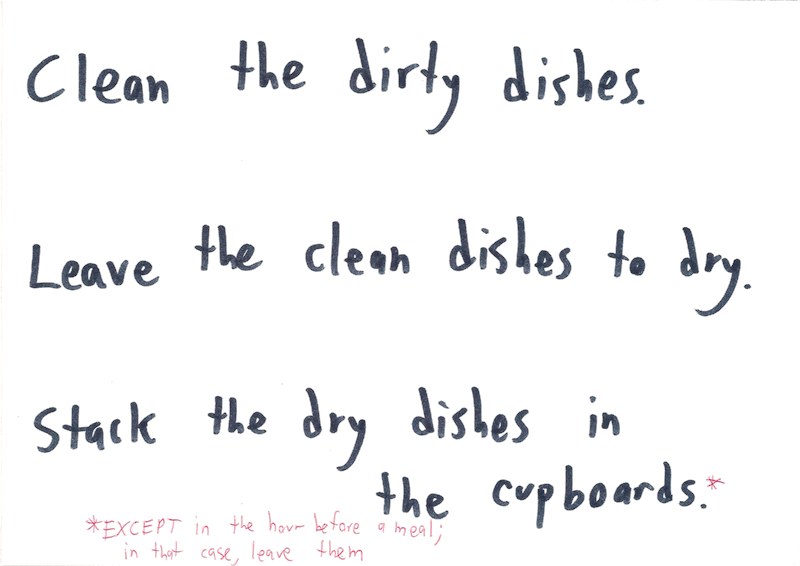 Clean the dirty dishes.
Leave the clean dishes to dry.
Stack the dry dishes in
the cupboards.*
*EXCEPT in the hour before a meal;
in that case, leave them